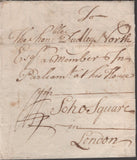 To
The Hon^ble Dudley North
Esq^r a Member in
Parliam^t at his House
Soho Square
in
London